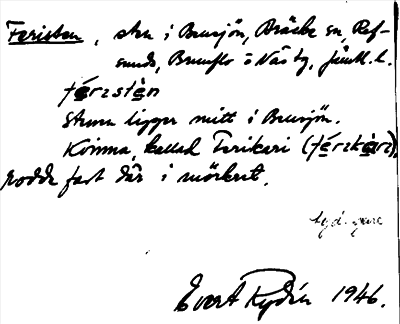 Feristen, sten i Bensjön, Bräcke sn, Ref-
sunds, Brunflo o Näs tg, Jämtl. l.
fę́rzstèn
Stenen ligger mitt i Bensjön.
Kvinna, kallad Ferikari (fę́rzkàrz),
rodde fast där i mörkret.
Evert Rydén 1946.